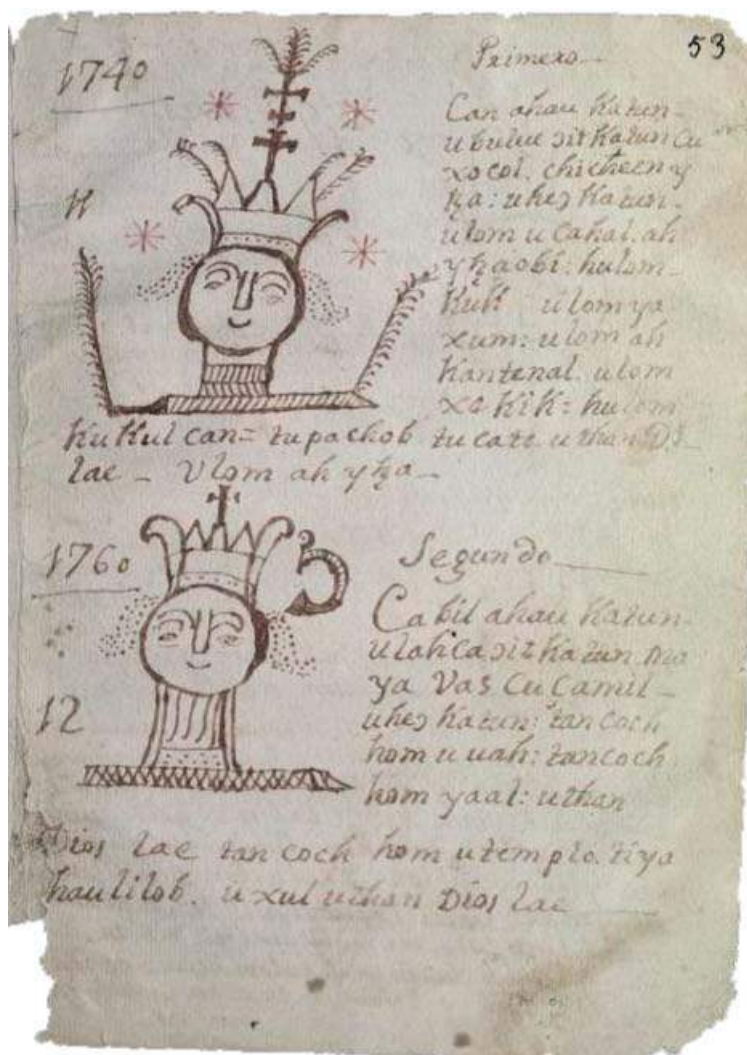 53
1740
Primero
Can ahau Katun
u buluc ɔit Katun Cu
xocol. chicheen y
tza: u heɔ Katun.
ulom u cahal. ah
ytzaobi: hulom
Kuk ulom ya
xum: ulom ah
Kantenal. ulom
xe Kik: hulom
KuKul can= tu pachob tu caten u than D.s
lae _ Vlom ah ytza _
1760
Segundo
12
Cabil ahau Katun
u lahca ɔit Katun ma
ya Vas Cu Camil _
u heɔ Katun: tan coch
hom u uah: tan coch
hom yaal: u than
Dios lae tan coch hom u templo. ti ya
haulilob. u xul u than Dios lae